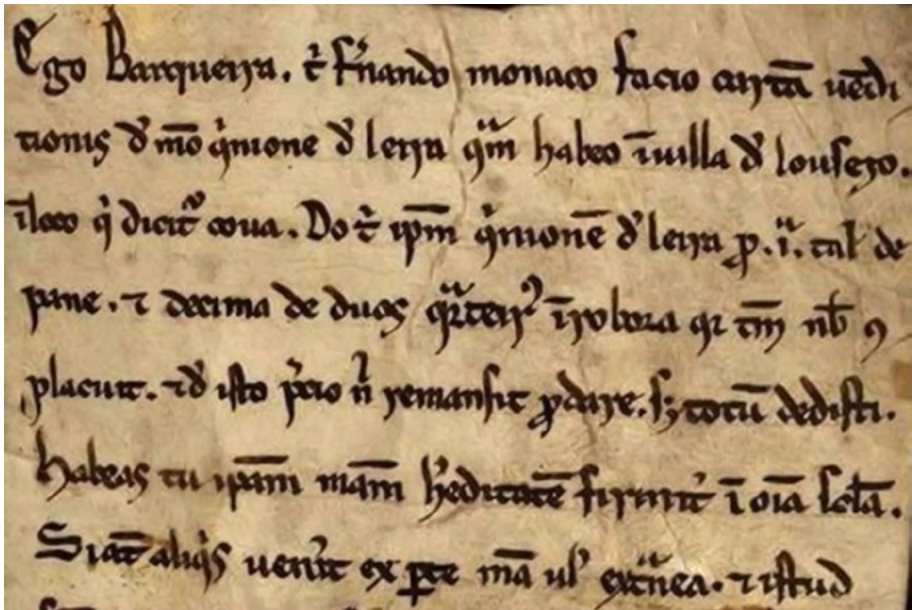 Ego Barqueira. t̃ f̃nando monaco facio cartā uēdi
tionis đ mō q̃nione đ leira qᵃm habeo ī uilla đ lousero.
ī loco q̃ dicit̃ coua. Do t̃ ip̄m q̃nionē đ leira ꝓ .iᵃ. tal̃ de
pane. ⁊ decima de duos qᵃrteirꝰ ī robora qr tm̄ nƀ ꝯ
placuit. ⁊ đ isto p̃cio ñ remansit ꝓ dare. sꝫ totū dedisti.
Habeas tu ipam̄ mam̄ h̃editatē firmit̃ ī oīa sc̄la.
Si at̄ aliq̃s ueñit ex ꝑte mā ul̃ extᵃnea. ⁊ istud